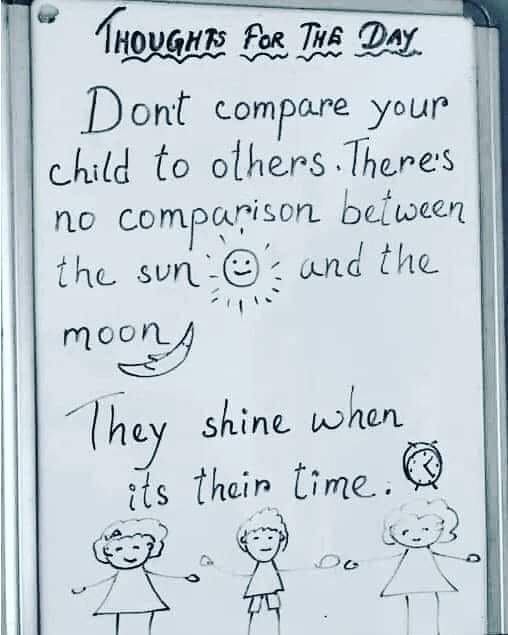 THOUGHTS FOR THE DAY
Dont compare your
child to others. There's
no comparison between
the sun and the
moon
They shine when
its their time.